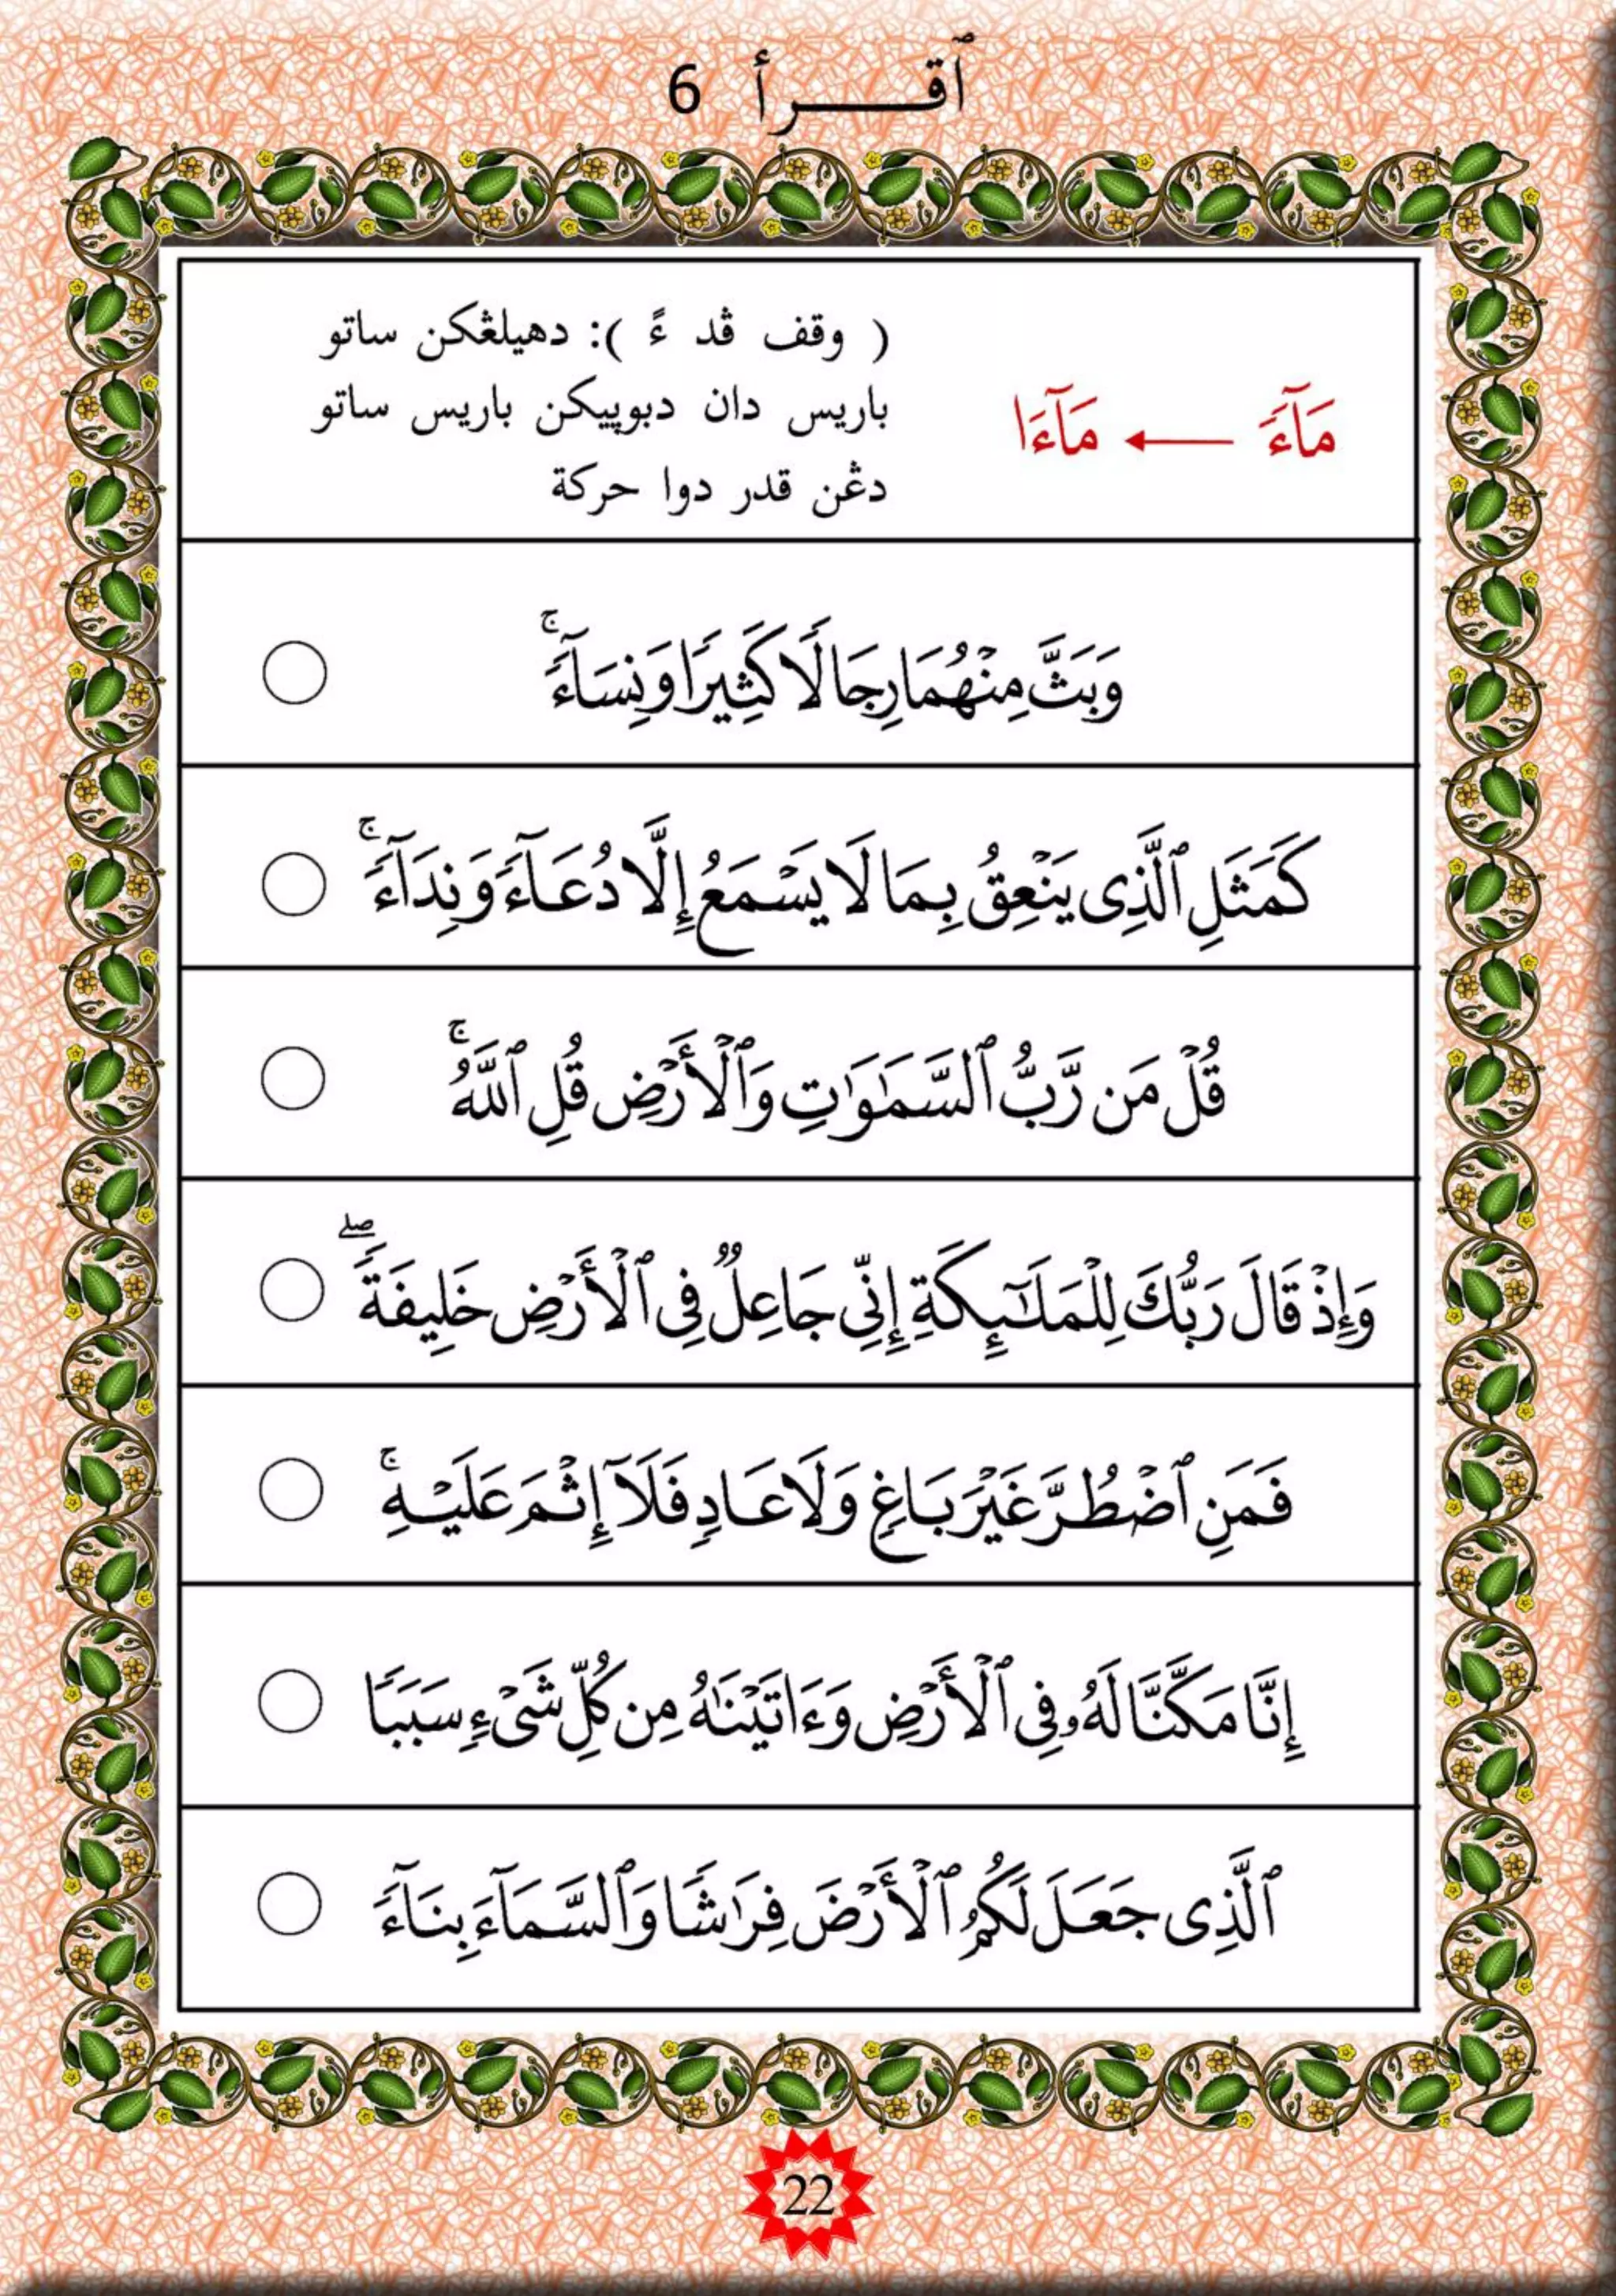 ٱقـــرأ 6
( وقف ڤد ءً ): دهيلڠكن ساتو
باريس دان دبوڽيكن باريس ساتو
دڠن قدر دوا حركة
مَآءً ← مَآءَا
وَبَثَّ مِنْهُمَا رِجَالًا كَثِيرًا وَنِسَآءً ۚ
كَمَثَلِ ٱلَّذِى يَنْعِقُ بِمَا لَا يَسْمَعُ إِلَّا دُعَآءً وَنِدَآءً ۚ
قُلْ مَن رَّبُّ ٱلسَّمَـٰوَٰتِ وَٱلْأَرْضِ قُلِ ٱللَّهُ ۚ
وَإِذْ قَالَ رَبُّكَ لِلْمَلَـٰٓئِكَةِ إِنِّى جَاعِلٌ فِى ٱلْأَرْضِ خَلِيفَةً ۖ
فَمَنِ ٱضْطُرَّ غَيْرَ بَاغٍ وَلَا عَادٍ فَلَآ إِثْمَ عَلَيْهِ ۚ
إِنَّا مَكَّنَّا لَهُۥ فِى ٱلْأَرْضِ وَءَاتَيْنَـٰهُ مِن كُلِّ شَىْءٍ سَبَبًا
ٱلَّذِى جَعَلَ لَكُمُ ٱلْأَرْضَ فِرَٰشًا وَٱلسَّمَآءَ بِنَآءً
22